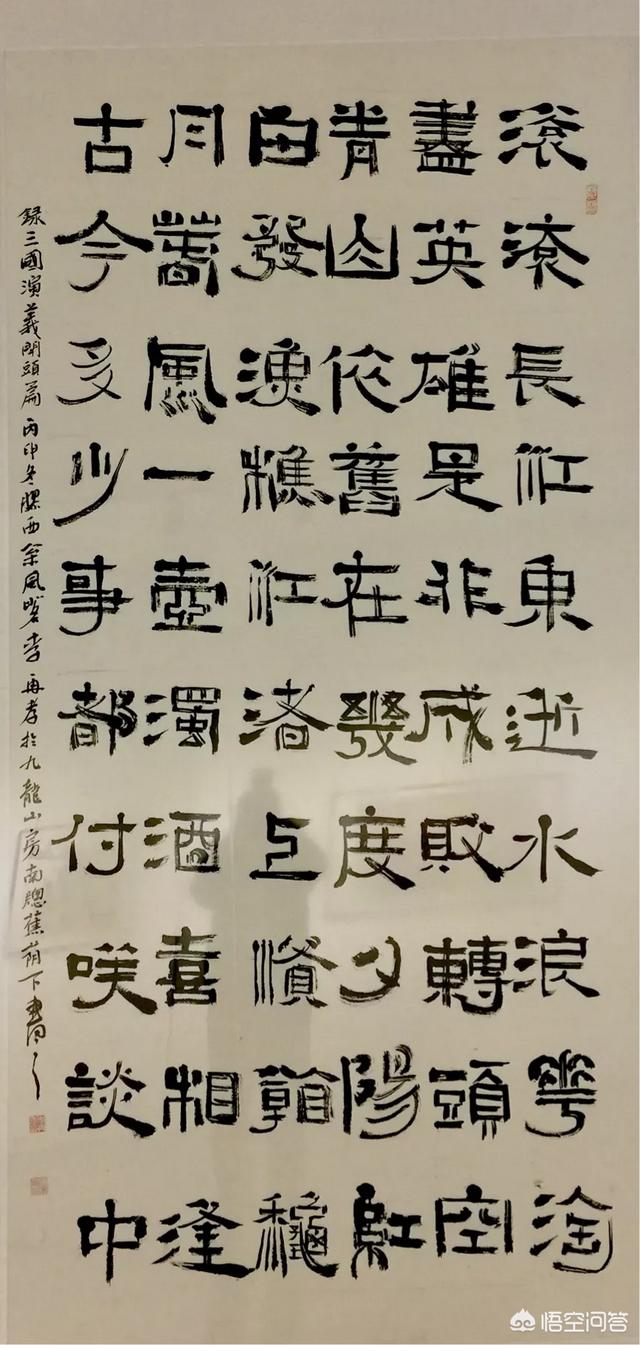 滚滚長江東逝水浪花淘
盡英雄是非成敗轉頭空
青山依舊在幾度夕陽紅
白發漁樵江渚上慣看龝
月萅風一壺濁酒喜相逢
古今多少事都付咲談中
録三國演義開頭篇 丙申冬膠西 於九龍山房南窗蕉蔭下
悟空问答